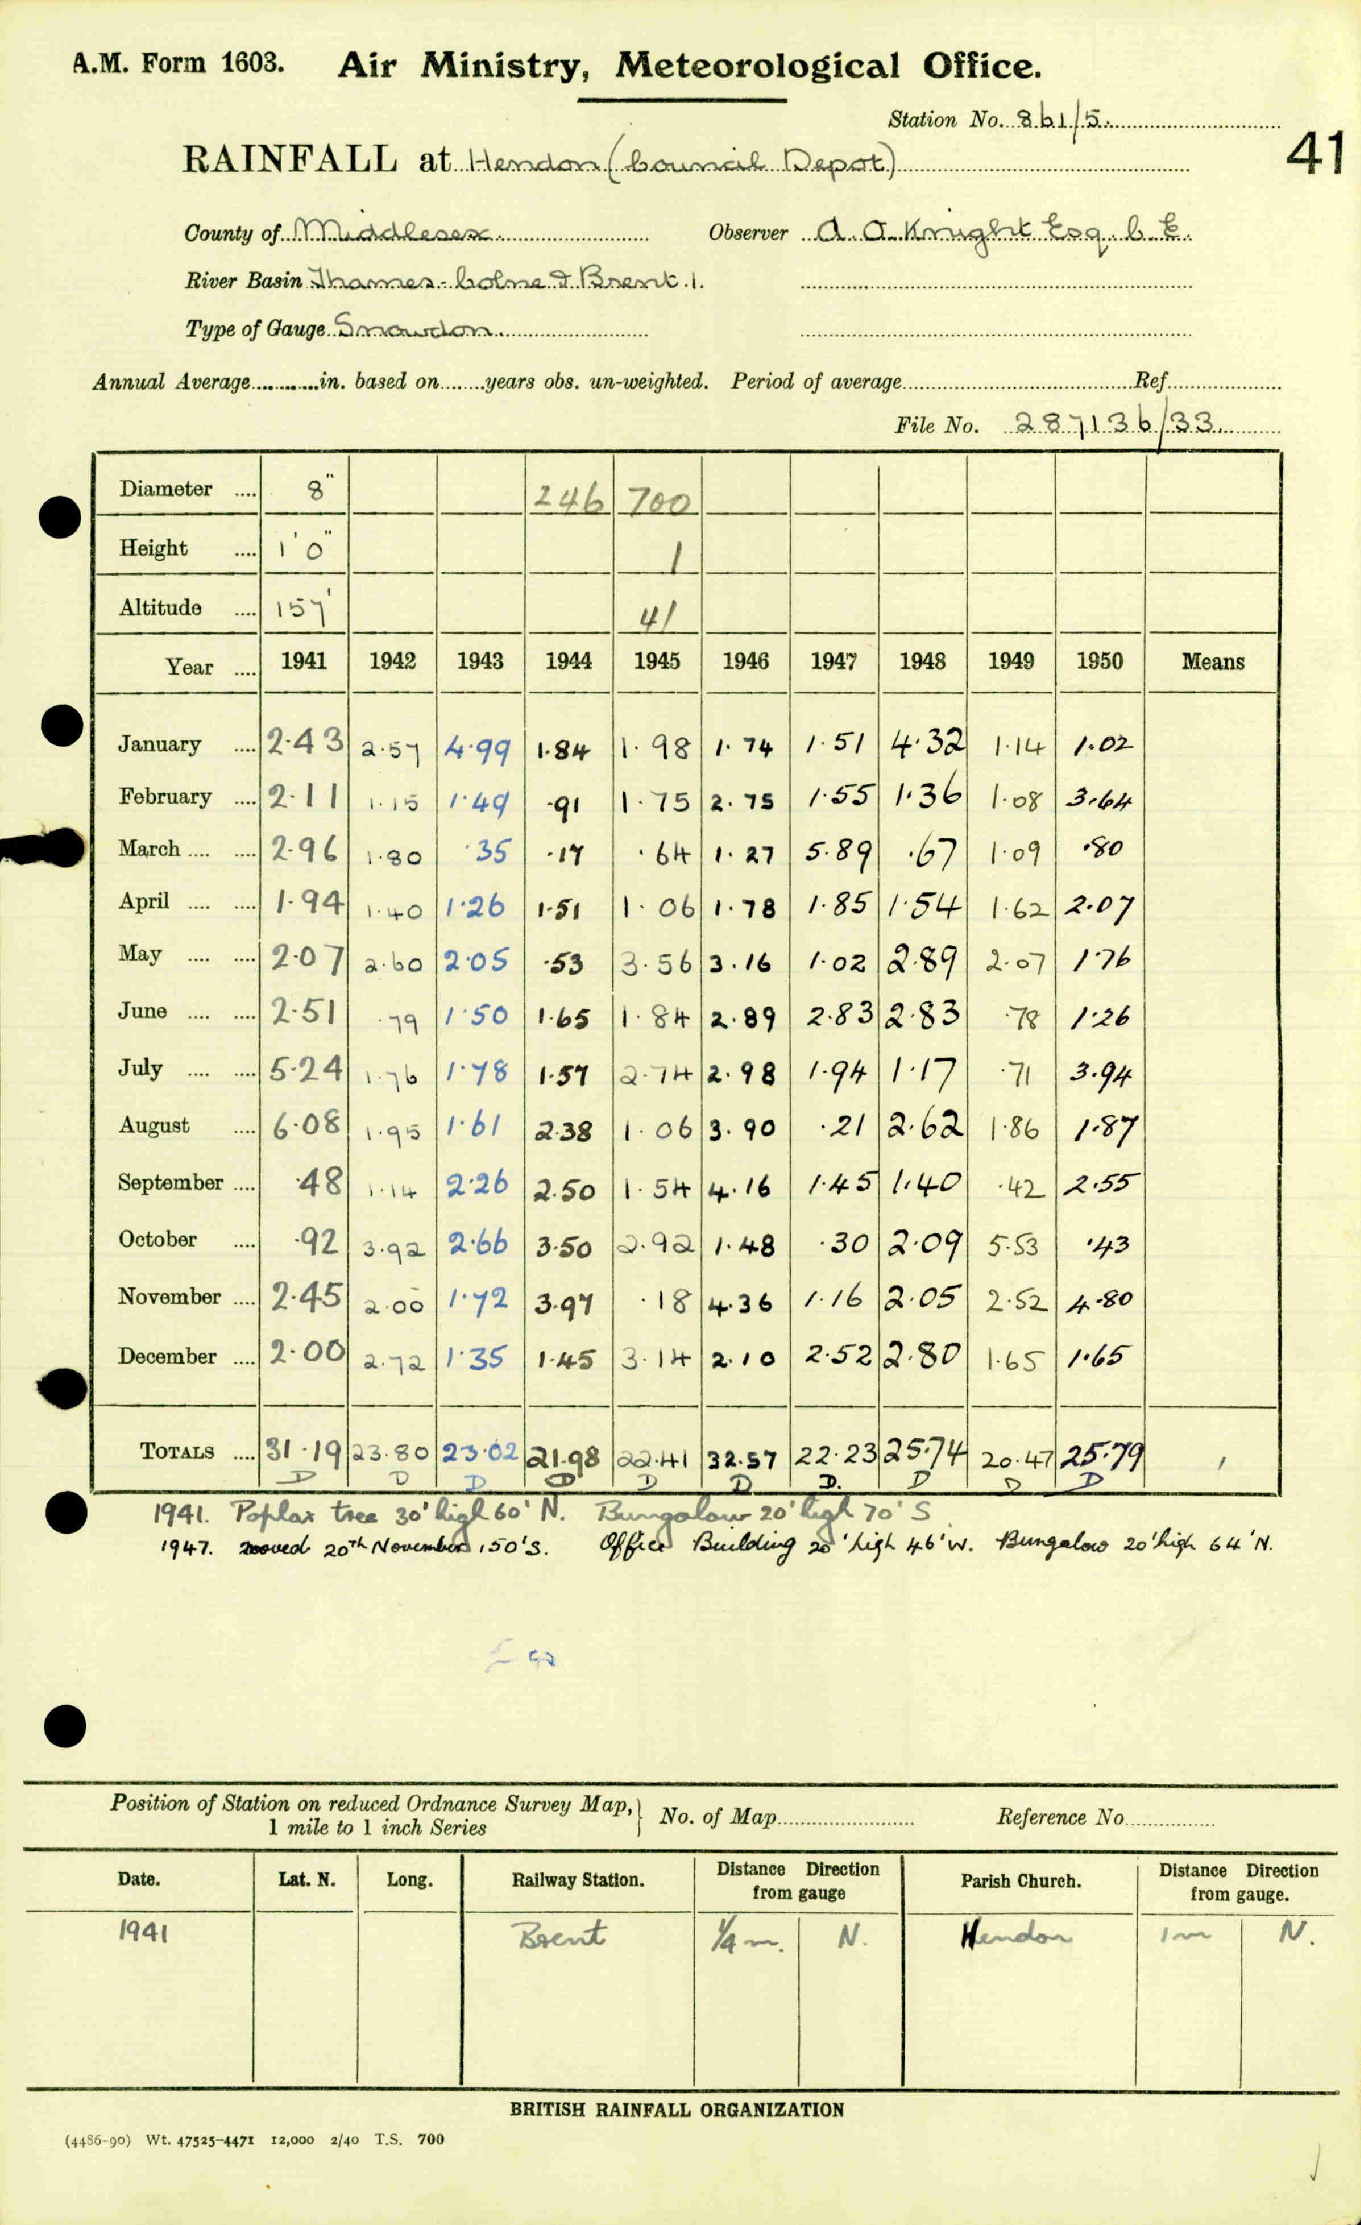 A.M. Form 1603. Air Ministry, Meteorological Office.
Station No. 861/5.
41
RAINFALL at Hendon (Council Depot)
County of Middlesex. Observer A. O. Knight Esq. C. E.
River Basin Thames - Colne & Brent. 1.
Type of Gauge Snowdon.
Annual Average............in. based on........years obs. un-weighted. Period of average............ Ref............
File No. 287136/33
Diameter .... 8" 246 700
Height .... 1' 0" 1
Altitude .... 157' 41
Year .... 1941 1942 1943 1944 1945 1946 1947 1948 1949 1950 Means
January .... 2.43 2.57 4.99 1.84 1.98 1.74 1.51 4.32 1.14 1.02
February .... 2.11 1.15 1.49 .91 1.75 2.75 1.55 1.36 1.08 3.64
March .... .... 2.96 1.80 .35 .17 .64 1.27 5.89 .67 1.09 .80
April .... .... 1.94 1.40 1.26 1.51 1.06 1.78 1.85 1.54 1.62 2.07
May .... .... 2.07 2.60 2.05 .53 3.56 3.16 1.02 2.89 2.07 1.76
June .... .... 2.51 .79 1.50 1.65 1.84 2.89 2.83 2.83 .78 1.26
July .... .... 5.24 1.76 1.78 1.57 2.74 2.98 1.94 1.17 .71 3.94
August .... 6.08 1.95 1.61 2.38 1.06 3.90 .21 2.62 1.86 1.87
September .... .48 1.14 2.26 2.50 1.54 4.16 1.45 1.40 .42 2.55
October .... .92 3.92 2.66 3.50 2.92 1.48 .30 2.09 5.53 .43
November .... 2.45 2.00 1.72 3.97 .18 4.36 1.16 2.05 2.52 4.80
December .... 2.00 2.72 1.35 1.45 3.14 2.10 2.52 2.80 1.65 1.65
TOTALS .... 31.19 23.80 23.02 21.98 22.41 32.57 22.23 25.74 20.47 25.79
D D D D D D D. D D D
1941. Poplar tree 30' high 60' N. Bungalow 20' high 70' S
1947. moved 20th November 150's. Office Building 20' high 46' W. Bungalow 20' high 64' N.
Position of Station on reduced Ordnance Survey Map, 1 mile to 1 inch Series } No. of Map............ Reference No............
Date. Lat. N. Long. Railway Station. Distance Direction from gauge Parish Church. Distance Direction from gauge.
1941 Brent 1/4 m. N. Hendon 1 m N.
BRITISH RAINFALL ORGANIZATION
(4486-90) Wt. 47525-4471 12,000 2/40 T.S. 700